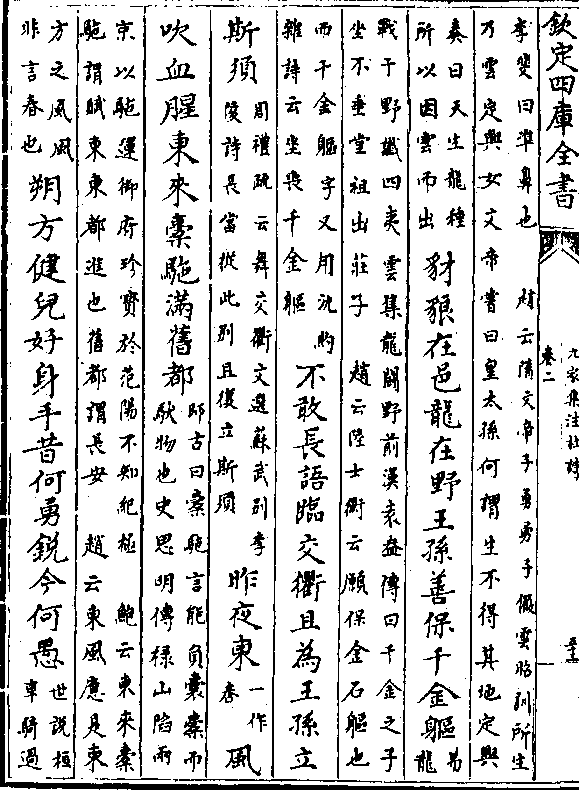 欽定四庫全書
九家集注杜詩
卷二
李斐曰準鼻也　趙云隋文帝子勇勇子儼雲昭訓所生
乃雲定興女文帝嘗曰皇太孫何謂生不得其地定興
奏曰天生龍種
所以因雲而出
豺狼在邑龍在野王孫善保千金軀
易
龍
戰于野孼四夷雲集龍鬭野前漢袁盎傳曰千金之子
坐不垂堂祖出莊子　趙云陸士衡云願保金石軀也
而千金軀字又用沈約
雜詩云坐喪千金軀
不敢長語臨交衢且為王孫立
斯須
周禮疏云舞交衢文選蘇武别李
陵詩長當從此别且復立斯須
昨夜東
一作
春
風
吹血腥東來橐駞滿舊都
師古曰橐駞言能負囊橐而
馱物也史思明傳禄山陷兩
京以駞運御府珍寶於范陽不知紀極　鮑云東來橐
駞謂賊東東都進也舊都謂長安　趙云東風應是東
方之風風
非言春也
朔方健兒好身手昔何勇鋭今何愚
世説桓
車騎過